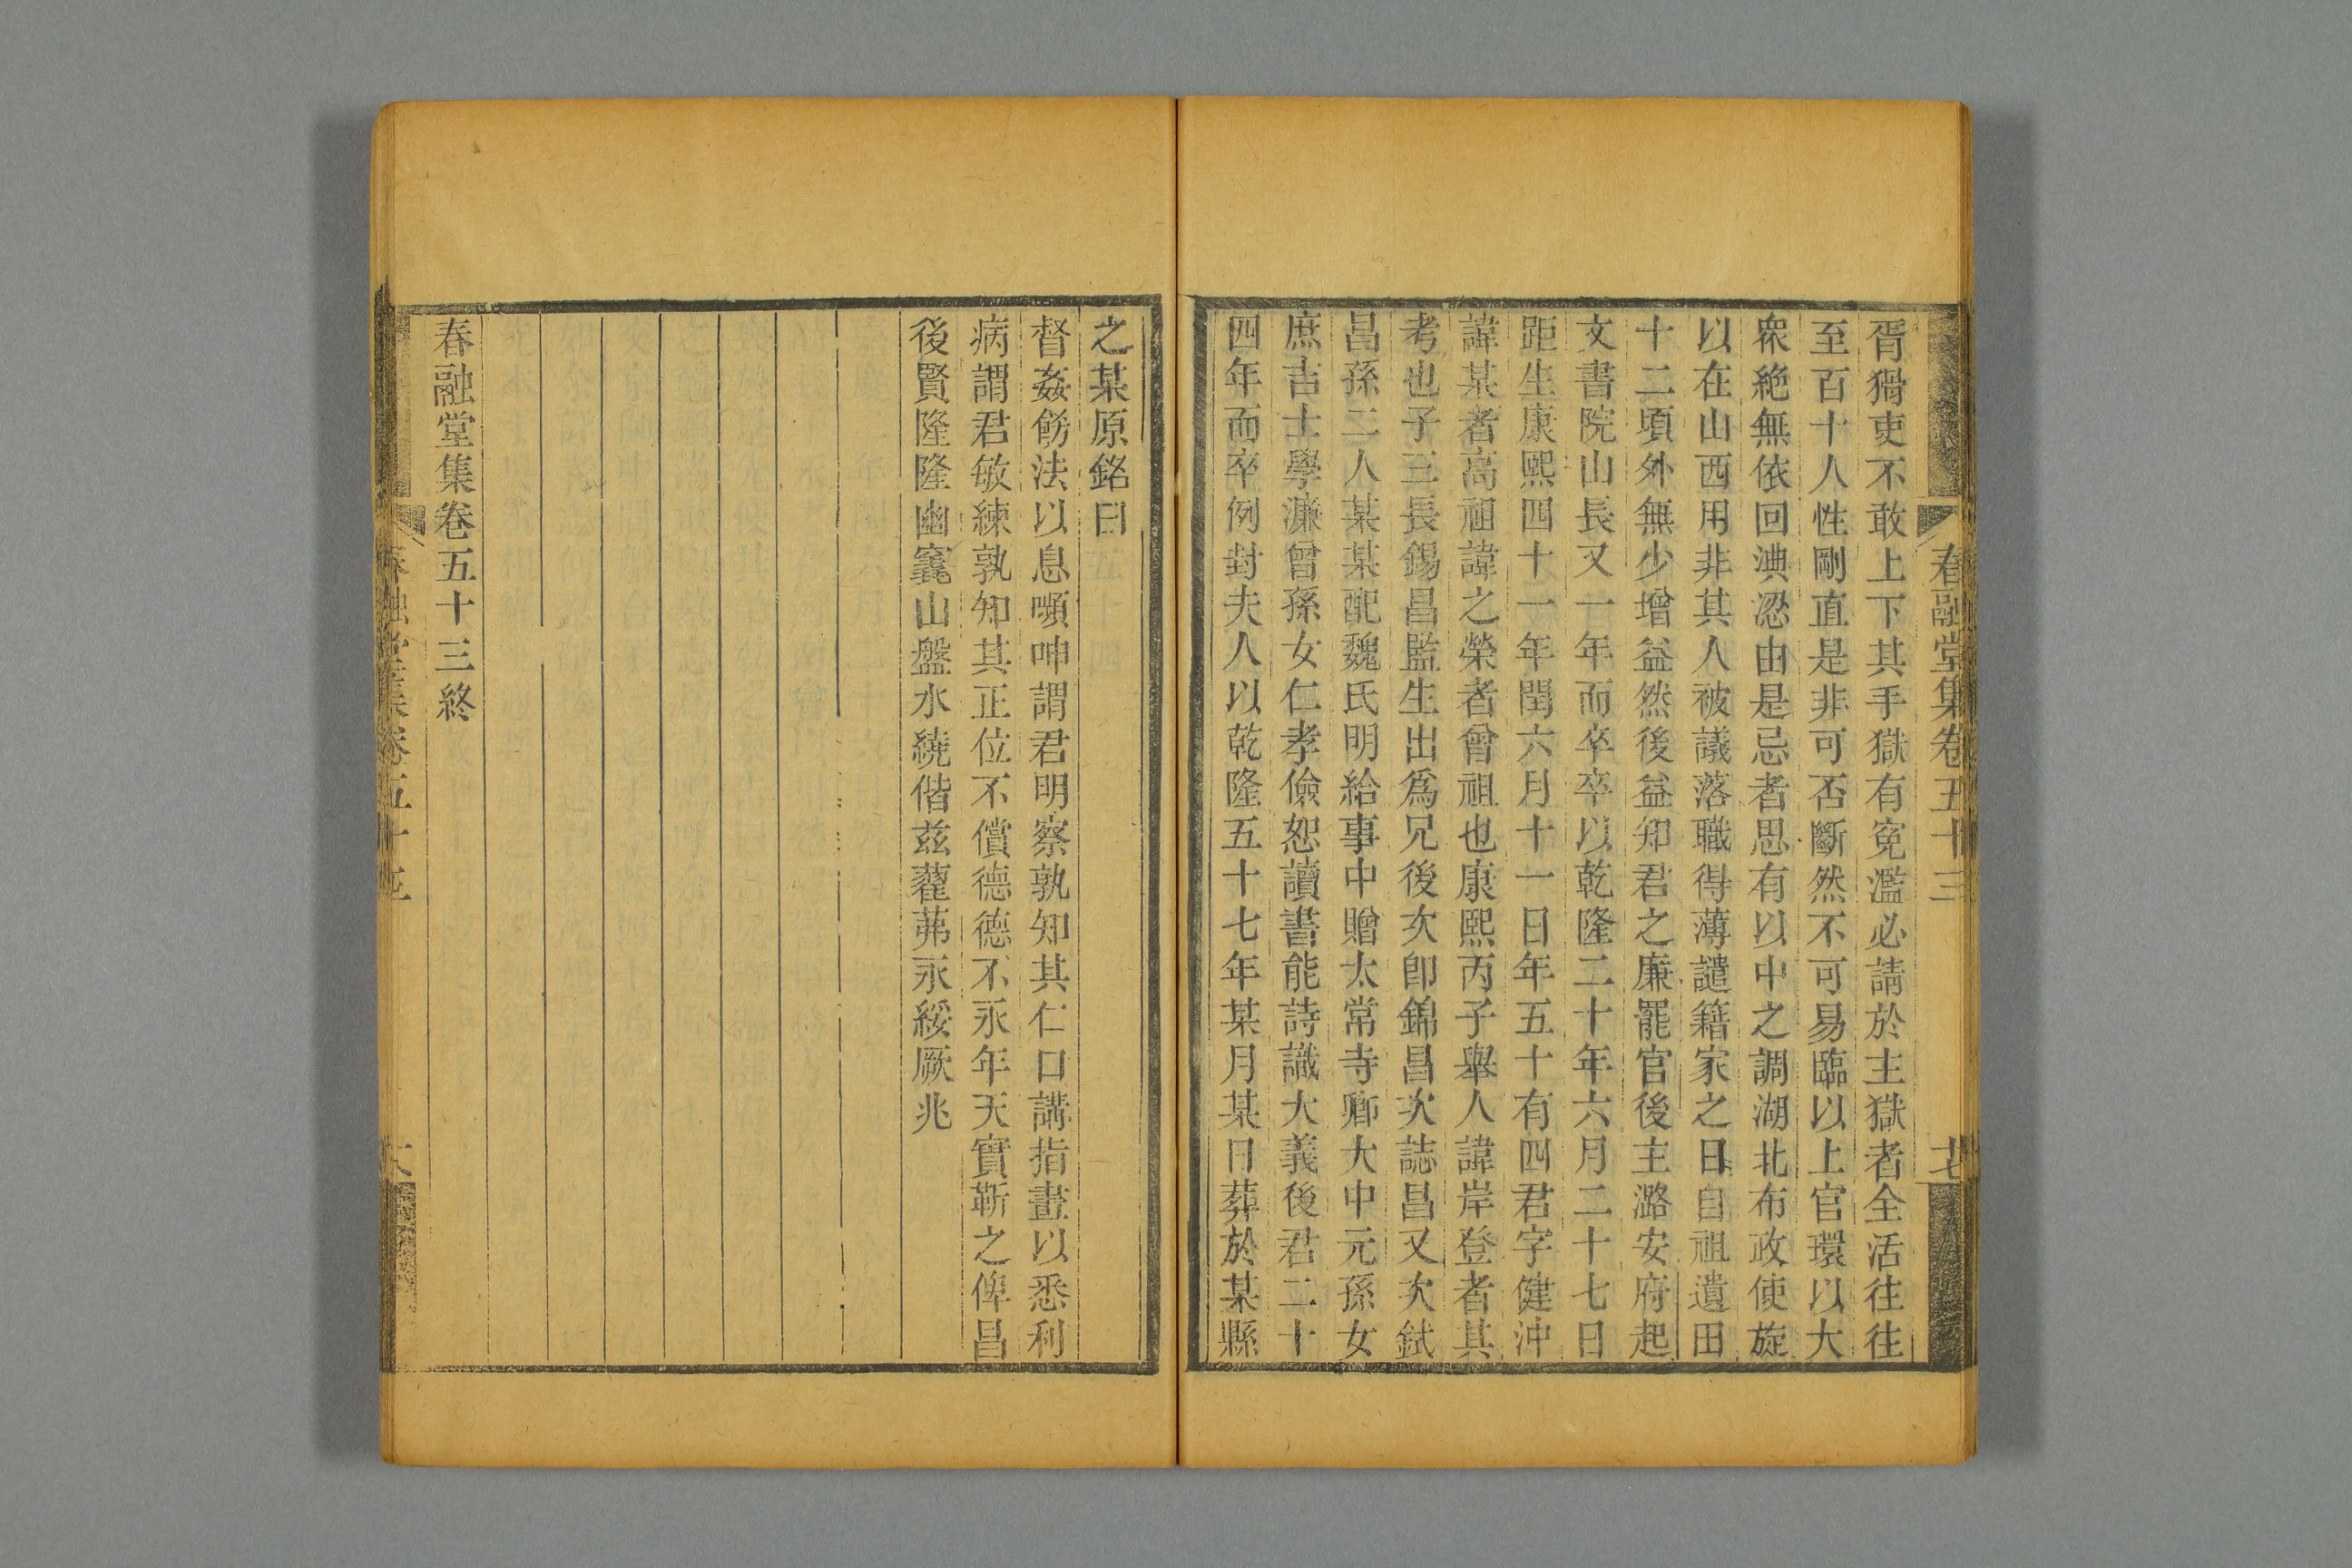 春融堂集卷五十三
十七
胥猾吏不敢上下其手獄有寃濫必請於主獄者全活往往
至百十人性剛直是非可否斷然不可易臨以上官環以大
衆絶無依回淟涊由是忌者思有以中之調湖北布政使旋
以在山西用非其人被議落職得薄譴籍家之日自祖遺田
十二頃外無少增益然後益知君之廉罷官後主潞安府起
文書院山長又一年而卒卒以乾隆二十年六月二十七日
距生康熙四十一年閏六月十一日年五十有四君字健沖
諱某者高祖諱之榮者曾祖也康熙丙子舉人諱岸登者其
考也子三長錫昌監生出爲兄後次卽錦昌次誌昌又次弑
昌孫二人某某配魏氏明給事中贈太常寺卿大中元孫女
庶吉士學濂曾孫女仁孝儉恕讀書能詩識大義後君二十
四年而卒例封夫人以乾隆五十七年某月某日葬於某縣
之某原銘曰
督姦飭法以息嚬呻謂君明察孰知其仁口講指畫以悉利
病謂君敏練孰知其正位不償德德不永年天實靳之俾昌
後賢隆隆幽窀山盤水繞偕兹藋茀永綏厥兆
春融堂集卷五十三終
春融堂集卷五十三